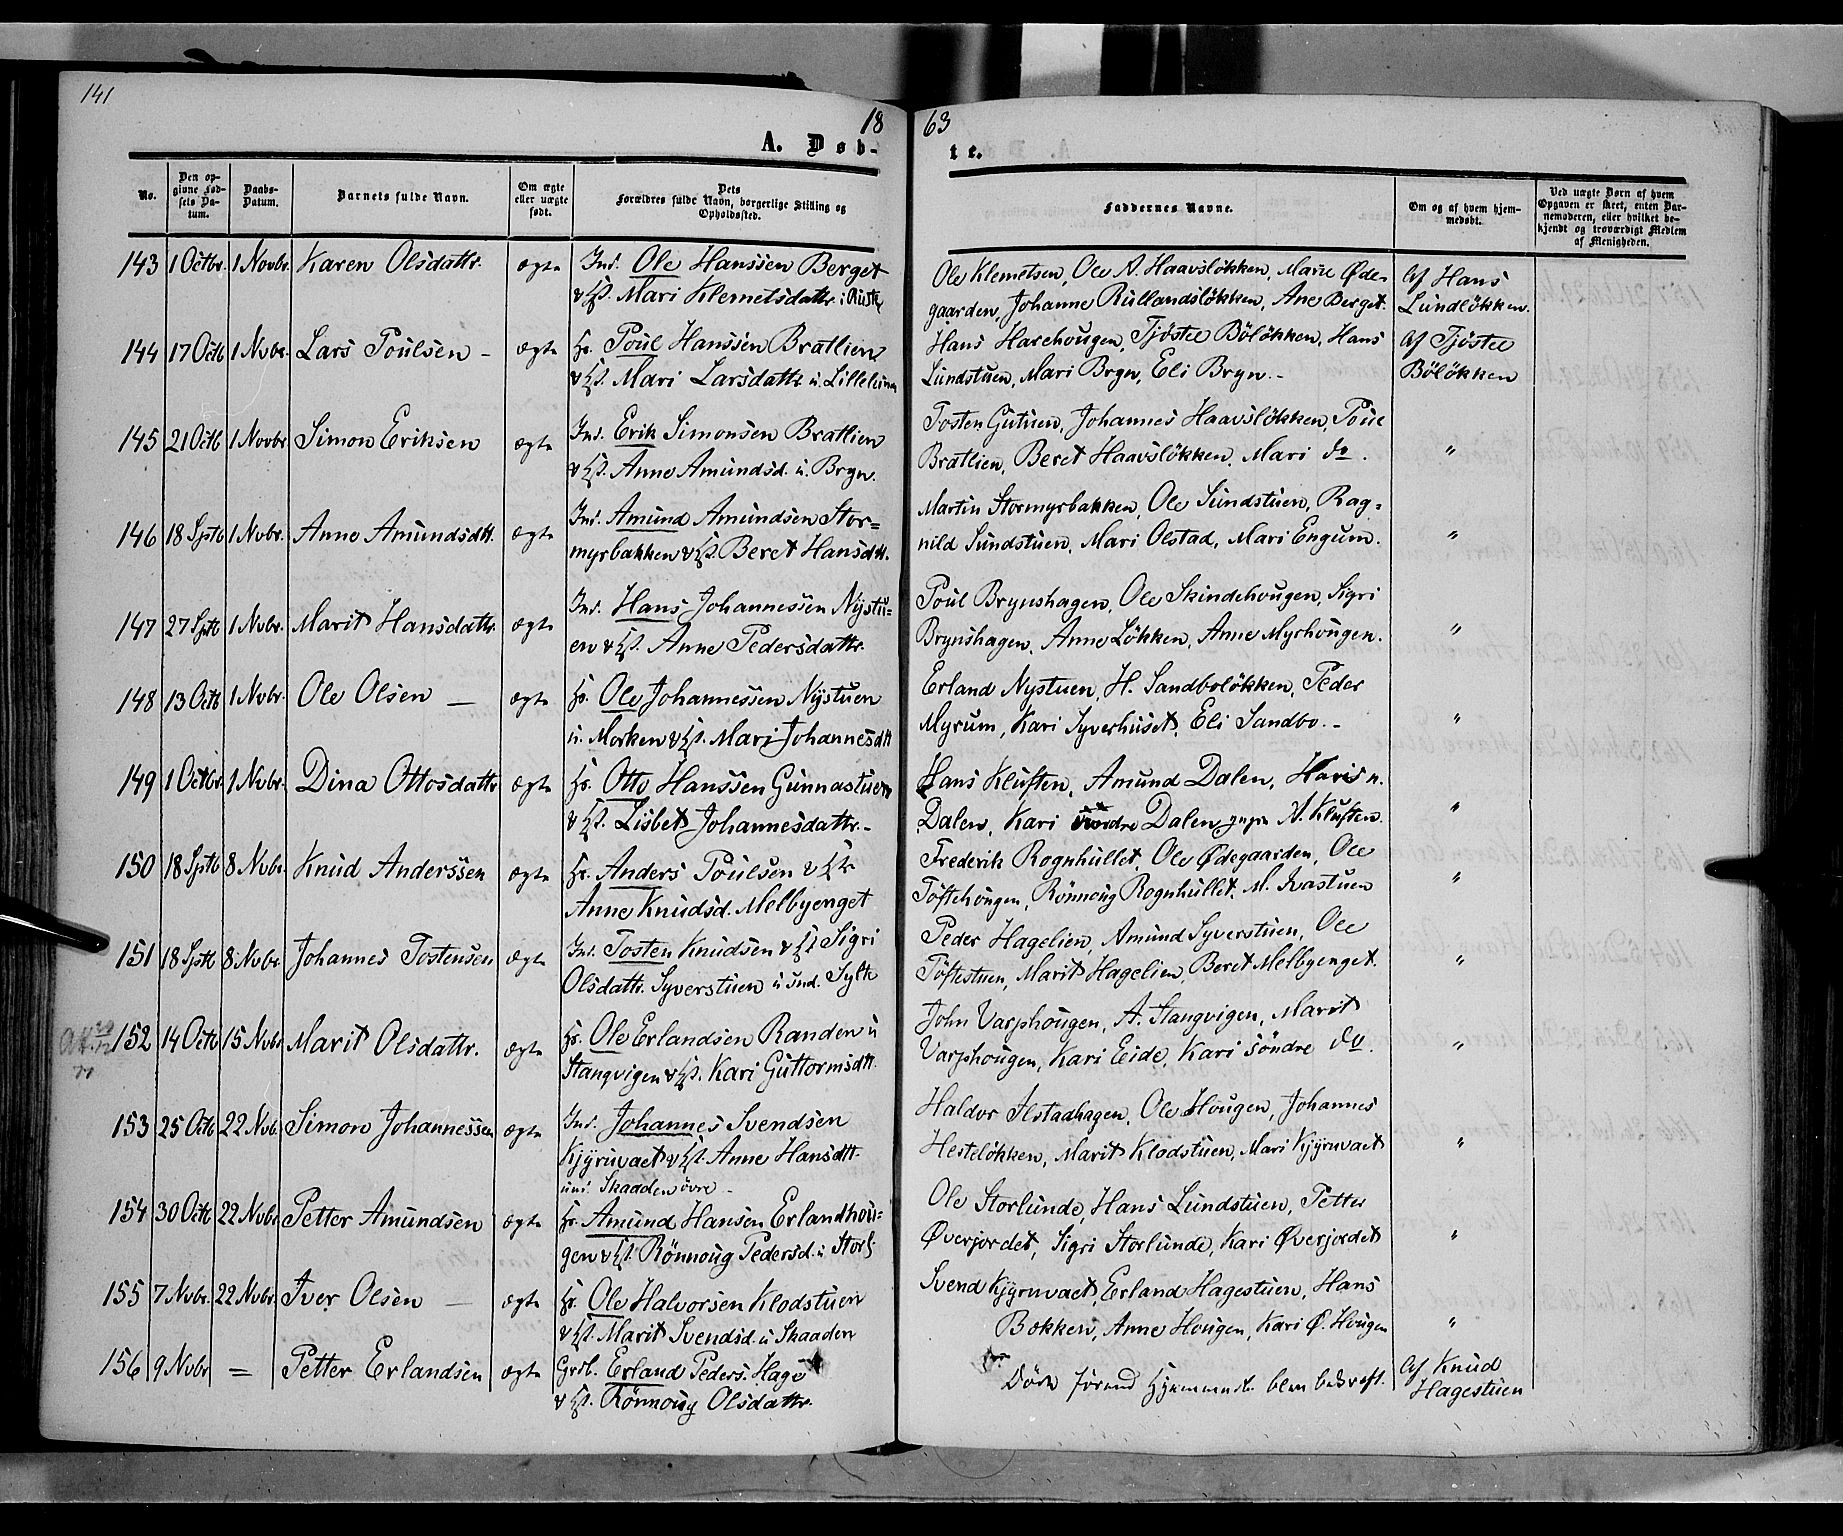 141
18
63
A. Døb-
te.
No.
Den op-
givne Fød-
sels Da-
tum.
Daabs-
Datum.
Barnets fulde Navn.
Om ægte
eller uægte
født.
Dets
Forældres fulde Navn, borgerlige Stilling og
Opholdssted.
Faddernes Navne.
Om og af hvem hjem-
medøbt.
Ved uægte Børn af hvem
Opgaven er skeet, enten Bar-
nemoderen, eller hvilket be-
kjendt og troværdigt Medlem
af Menigheden.
143 1 Octbr. 1 Novbr. Karen Olsdattr. ægte Ind. Ole Hanssen Berget
& Hst. Mari Klemetsdattr. i Ruste
Ole Klemetsen, Ole A. Haavsløkken, Marie Øde-
gaarden, Johanne Rullandsløkken, Ane Berget.
Af Hans
Lundløkken.
144 17 Octb 1 Nvbr. Lars Poulsen - ægte Hr. Poul Hanssen Bratlien
& Hst. Mari Larsdattr u. Lillelien
Hans Harehougen, Tjøstel Böløkken, Hans
Lundstuen, Mari Bryn, Eli Bryn. -
Af Tjøstel
Böløkken
145 21 Octb 1 Novbr Simon Eriksen ægte Ind. Erik Simonsen Bratlien
& Hst. Anne Amundsd. u. Bryn.
Tosten Gutuen, Johannes Haavsløkken, Poul
Bratlien, Beret Haavsløkken, Mari do.
"
146 18 Sptb 1 Nvbr. Anne Amundsdtt. ægte Ind. Amund Amundsen Stor=
myrbakken & Hst. Beret Hansdtt.
Martin Stormyrbakken, Ole Sundstuen, Rag-
nild Sundstuen, Mari Olstad, Mari Engum.
"
147 27 Sptb 1 Nvbr. Marit Hansdattr. ægte Ind. Hans Johannessen Nystu=
en & Hst. Anne Pedersdattr.
Poul Brynshagen, Ole Skindehougen, Sigri
Brynshagen, Anne Løkken, Anne Myrhougen.
"
148 13 Octb 1 Nvbr. Ole Olsen - ægte Hr. Ole Johannessen Nystuen
u. Morken & Hst. Mari Johannesdtt
Erland Nystuen, H. Sandboløkken, Peder
Myrum, Kari Syverhuset, Eli Sandbo. -
"
149 1 Octbr. 1 Nvbr. Dina Ottosdattr ægte Hr. Otto Hanssen Gunnastuen
& Hst. Lisbet Johannesdattr. -
Hans Kluften, Amund Dalen, Hans n.
Dalen, Kari søndre Dalen, N. Kluften.
"
150 18 Sptb 8 Nvbr. Knud Anderssen ægte Hr. Anders Poulsen & Hst
Anne Knudsd. Melbyenget
Frederik Rognhullet, Ole Ødegaarden, Ole
Toftehougen, Rönnoug Rognhullet, M. Ivastuen
"
151 18 Sptb 8 Nvbr Johannes Tostensen ægte Ind. Tosten Knudsen & Hst Sigri
Olsdattr. Syverstuen u ind. Sylte
Peder Hagelien, Amund Syverstuen, Ole
Toftestuen, Marit Hagelien, Beret Melbyenget.
"
152 14 Octb 15 Nvbr Marit Olsdattr. ægte Hr. Ole Erlandsen Randen u
Stangvigen & Hst. Kari Guttormsdtt.
John Varphougen, A. Stangvigen, Marit
Varphougen, Kari Eide, Kari söndre do.
"
153 25 Octb 22 Nvb. Simon Johannessen ægte Ind. Johannes Svendsen
Kjyruvaet & Hst. Anne Hansdtt.
und. Skaaden övre -
Haldor Ilstadhagen, Ole Hougen, Johannes
Hesteløkken, Marit Klodstuen, Mari Kjyruvaet
"
154 30 Octb 22 Nvbr Petter Amundsen ægte Hr. Amund Hansen Erlandhou=
gen & Hst. Rönnoug Pedersd. u Storl.
Ole Storlunde, Hans Lundstuen, Petter
Øverjordet, Sigri Storlunde, Kari Øverjordet
"
155 7 Nvbr. 22 Nvbr. Iver Olsen - ægte Hr. Ole Halvorsen Klodstuen
& Hst. Marit Svendsd. u Skaaden
Svend Kjyruvaet, Erland Hagestuen, Hans
Bakken, Anne Hougen, Kari Ø. Hougen
"
156 9 Nvbr = Petter Erlandsen ægte Grdb. Erland Peders. Hage
& Hst. Rönnoug Olsdattr.
Døde førend Hjemmed. blev bekræft.
Af Knud
Hagestuen